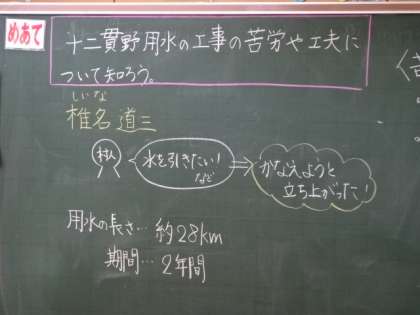 めあて
十二貫野用水の工事の苦労や工夫に
ついて知ろう。
しいな
椎名道三
村人
水を引きたい！
など
かなえようと
立ち上がった！
用水の長さ…約28km
期間…2年間